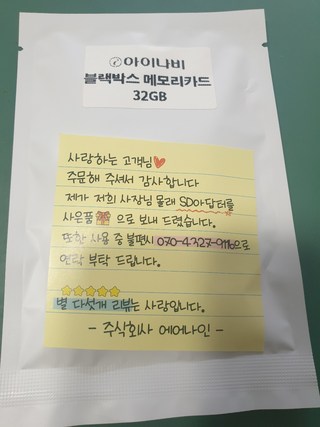 아이나비
블랙박스 메모리카드
32GB
사랑하는 고객님
주문해 주셔서 감사합니다
제가 저희 사장님 몰래 SD아답터를
사은품 으로 보내 드렸습니다.
또한 사용 중 불편시 070-4327-9116으로
연락 부탁 드립니다.
별 다섯개 리뷰는 사랑입니다.
- 주식회사 에어나인 -